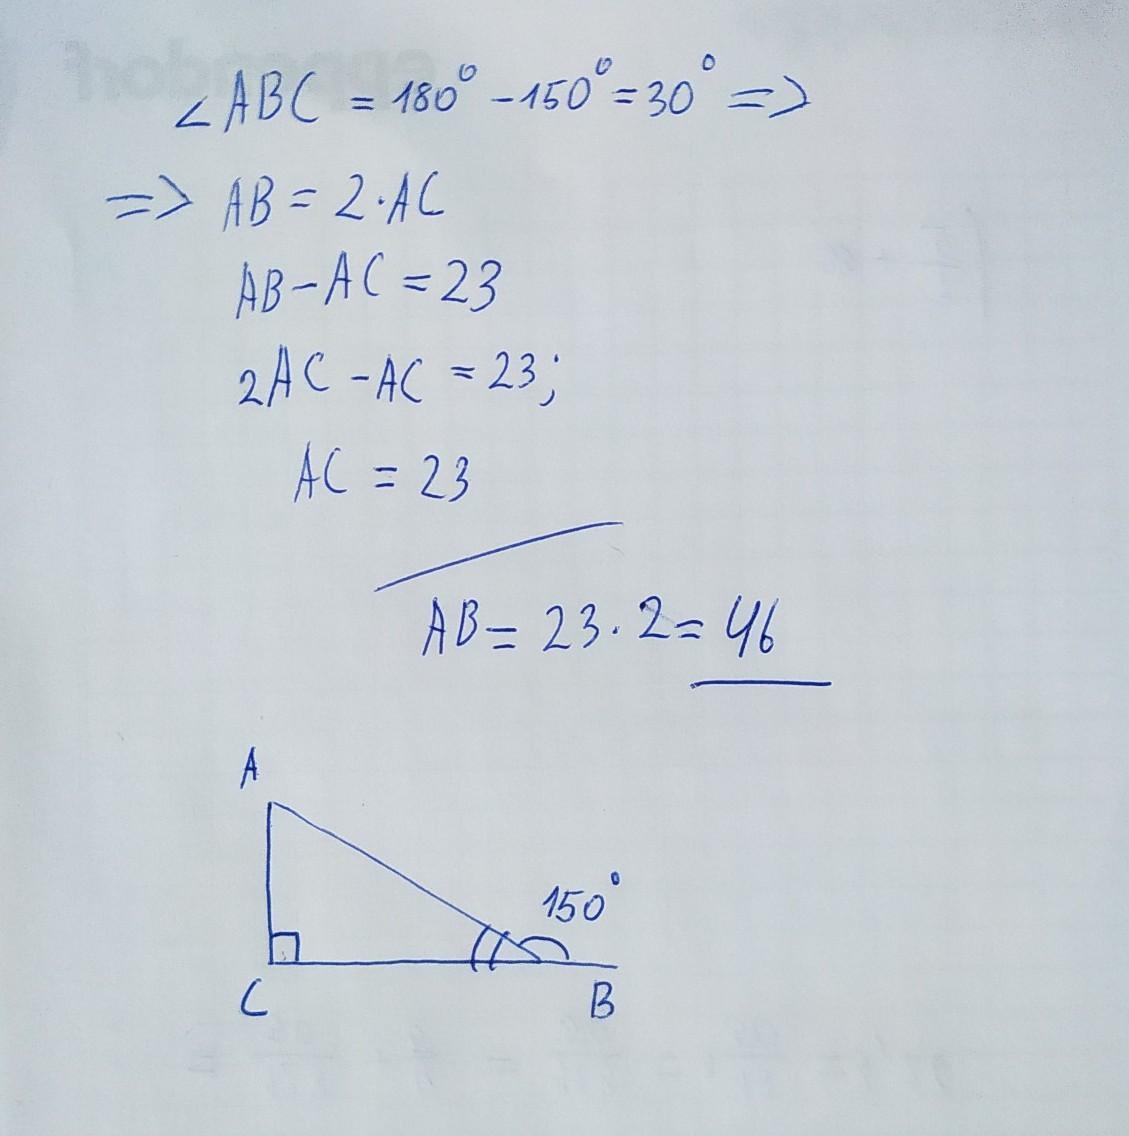 ∠ABC = 180° - 150° = 30° =>
=> AB = 2·AC
AB - AC = 23
2AC - AC = 23;
AC = 23
AB = 23·2 = 46
A
150°
C
B